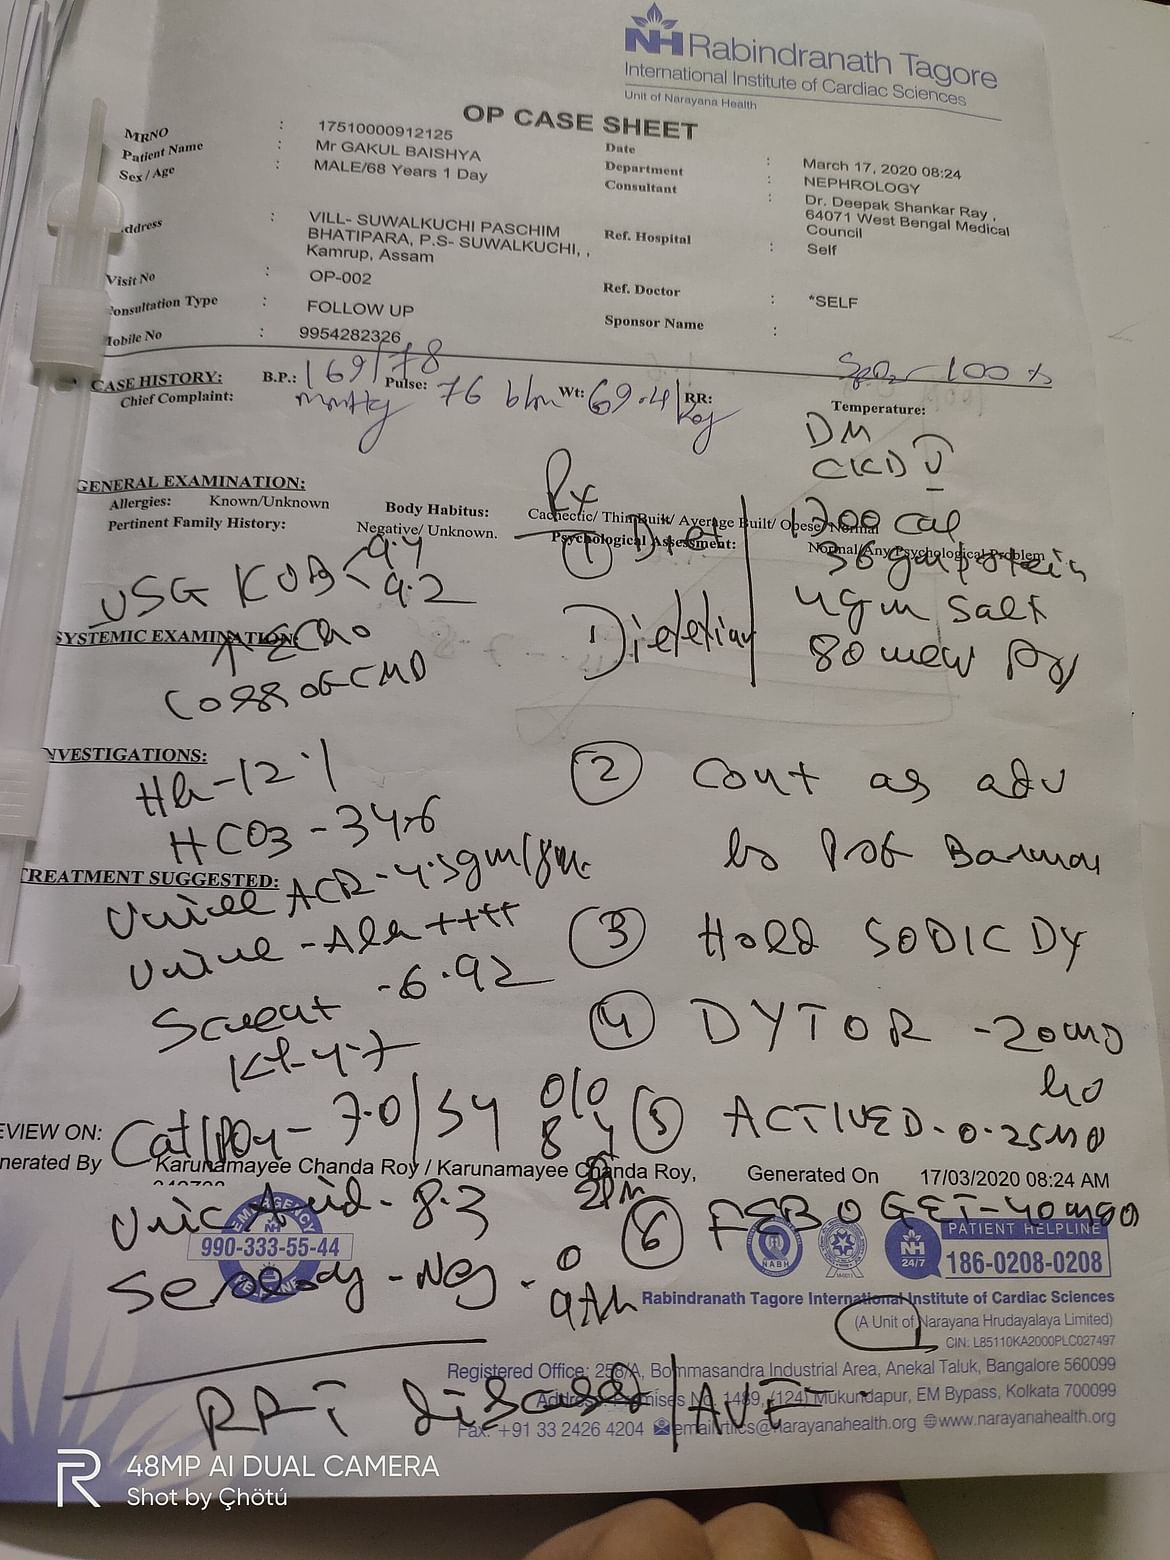 NH Rabindranath Tagore
International Institute of Cardiac Sciences
Unit of Narayana Health
OP CASE SHEET
MRNO : 17510000912125
Patient Name : Mr GAKUL BAISHYA
Sex / Age : MALE/68 Years 1 Day
Date : March 17, 2020 08:24
Department : NEPHROLOGY
Consultant : Dr. Deepak Shankar Ray ,
64071 West Bengal Medical
Council
ddress : VILL- SUWALKUCHI PASCHIM
BHATIPARA, P.S- SUWALKUCHI, ,
Kamrup, Assam
Ref. Hospital : Self
Visit No : OP-002
Ref. Doctor : *SELF
onsultation Type : FOLLOW UP
Sponsor Name :
Iobile No : 9954282326
SpO2 - 100 %
CASE HISTORY: B.P.: 169/78 mmHg Pulse: 76 b/m Wt: 69.4 kg RR:
Chief Complaint:
Temperature:
DM
CKD V
GENERAL EXAMINATION:
Allergies: Known/Unknown
Body Habitus: Cachectic/ Thin Built/ Average Built/ Obese/ Normal
Pertinent Family History: Negative/ Unknown.
Psychological Assessment: Normal/Any Psychological Problem
Rx
① Diet
Dietetian
1700 cal
36 gm protein
4 gm salt
80 mew
USG KUB 9.4
9.2
SYSTEMIC EXAMINATION:
↑ ECho
Coss of CMD
NVESTIGATIONS:
Hb - 12.1
HCO3 - 34.6
② Cont as adv
by Prof Barman
TREATMENT SUGGESTED:
Urine ACR - 4.5gm/gm
Urine - Alb ++++
③ Hold SODICDY
Screat - 6.92
K+ - 4.7
④ DYTOR - 20mg
Cat/PO4 - 7.0/54
8
⑤ ACTIVED - 0.25MG
EVIEW ON:
nerated By Karunamayee Chanda Roy / Karunamayee Chanda Roy,
Generated On 17/03/2020 08:24 AM
Uric Acid - 8.3
2PM
⑥ FEBOGET - 40mg
EMERGENCY
NH
990-333-55-44
NABH
NH
24/7
PATIENT HELPLINE
186-0208-0208
Serology - Neg
Rabindranath Tagore International Institute of Cardiac Sciences
(A Unit of Narayana Hrudayalaya Limited)
CIN: L85110KA2000PLC027497
Registered Office: 258/A, Bommasandra Industrial Area, Anekal Taluk, Bangalore 560099
Address: Premises No. 1489, (124) Mukundapur, EM Bypass, Kolkata 700099
Fax: +91 33 2426 4204 email: rtiics@narayanahealth.org www.narayanahealth.org
RRT discussed / AVF
48MP AI DUAL CAMERA
Shot by Çhötú